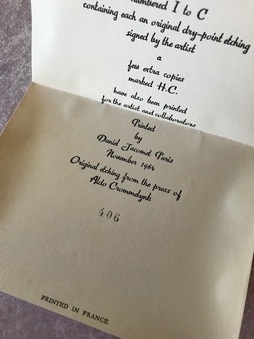 numbered I to C
containing each an original dry-point etching
signed by the artist
a
few extra copies
marked H.C.
have also been printed
for the artist and collaborators
Printed
by
Daniel Jacomet Paris
November 1964
Original etching from the press of
Aldo Crommelynck
406
PRINTED IN FRANCE